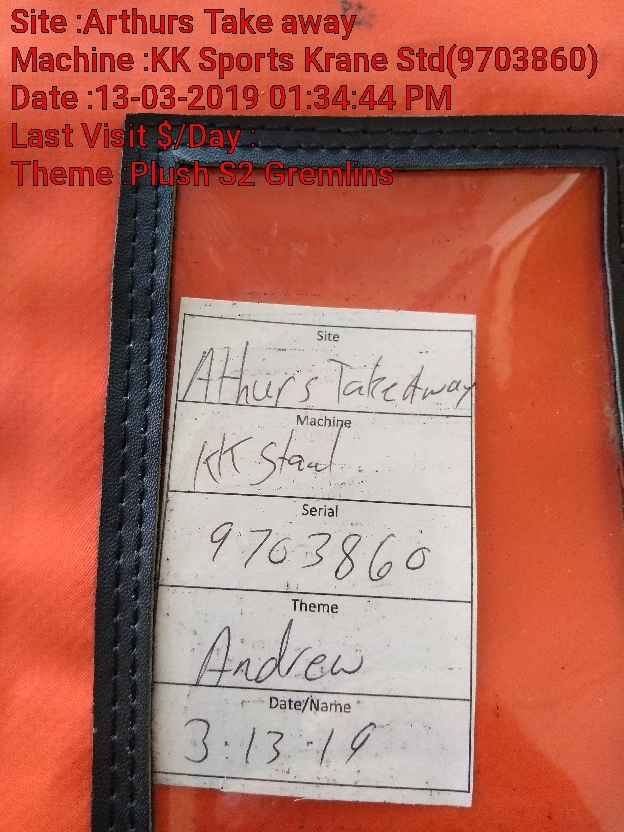 Site :Arthurs Take away
Machine :KK Sports Krane Std(9703860)
Date :13-03-2019 01:34:44 PM
Last Visit $/Day :
Theme :Plush S2 Gremlins
Site
Athurs TakeAway
Machine
KK Stad
Serial
9703860
Theme
Andrew
Date/Name
3.13.19